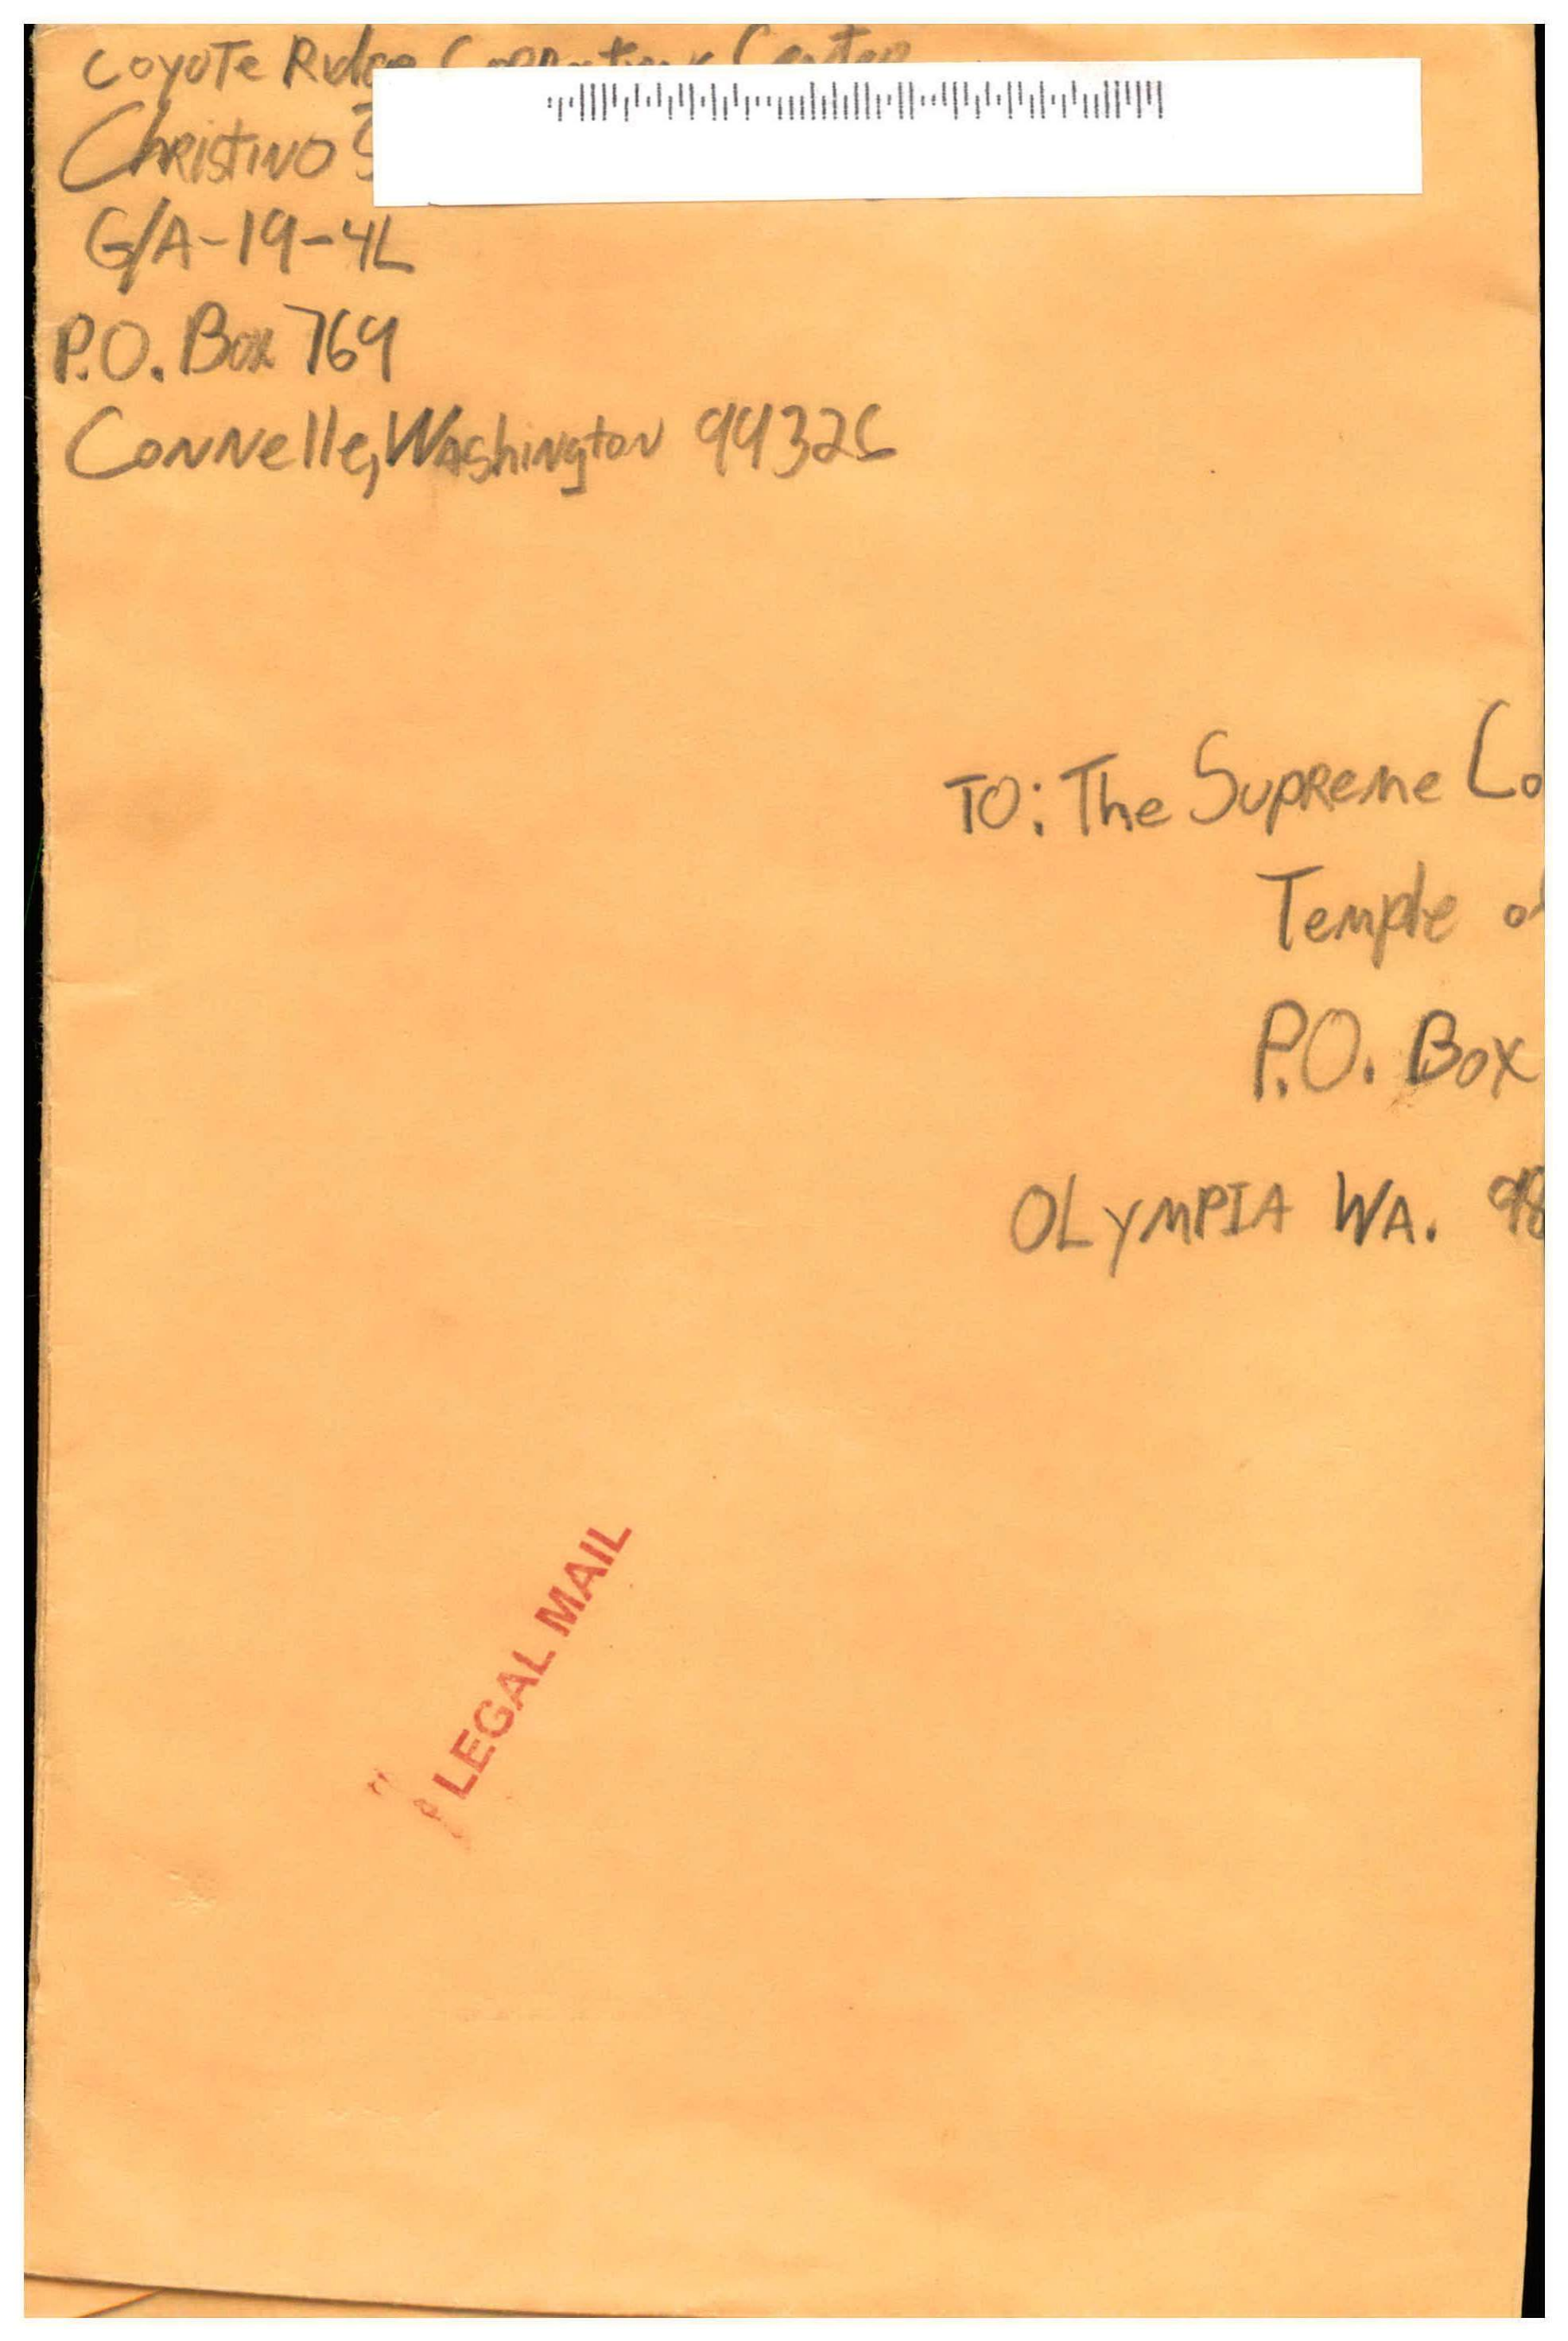 Coyote Ridge Corrections Center
Christino
G/A-19-4L
P.O. Box 769
Connelle, Washington 99326
TO: The Supreme Co
Temple of
P.O. Box
OLYMPIA WA. 98
LEGAL MAIL